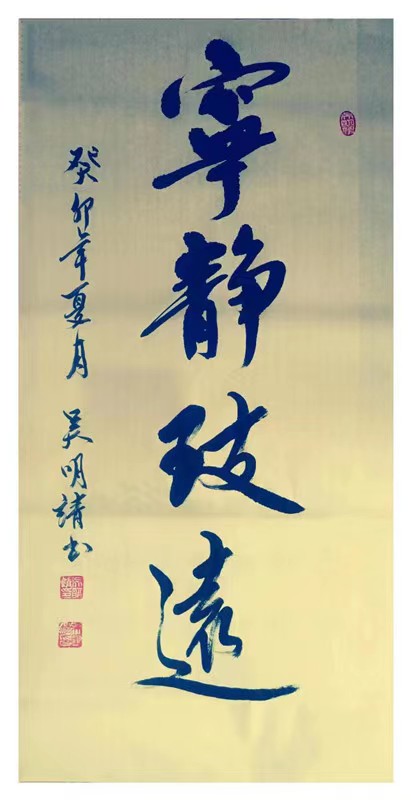 寧靜致遠
癸卯年夏月 吴明靖书